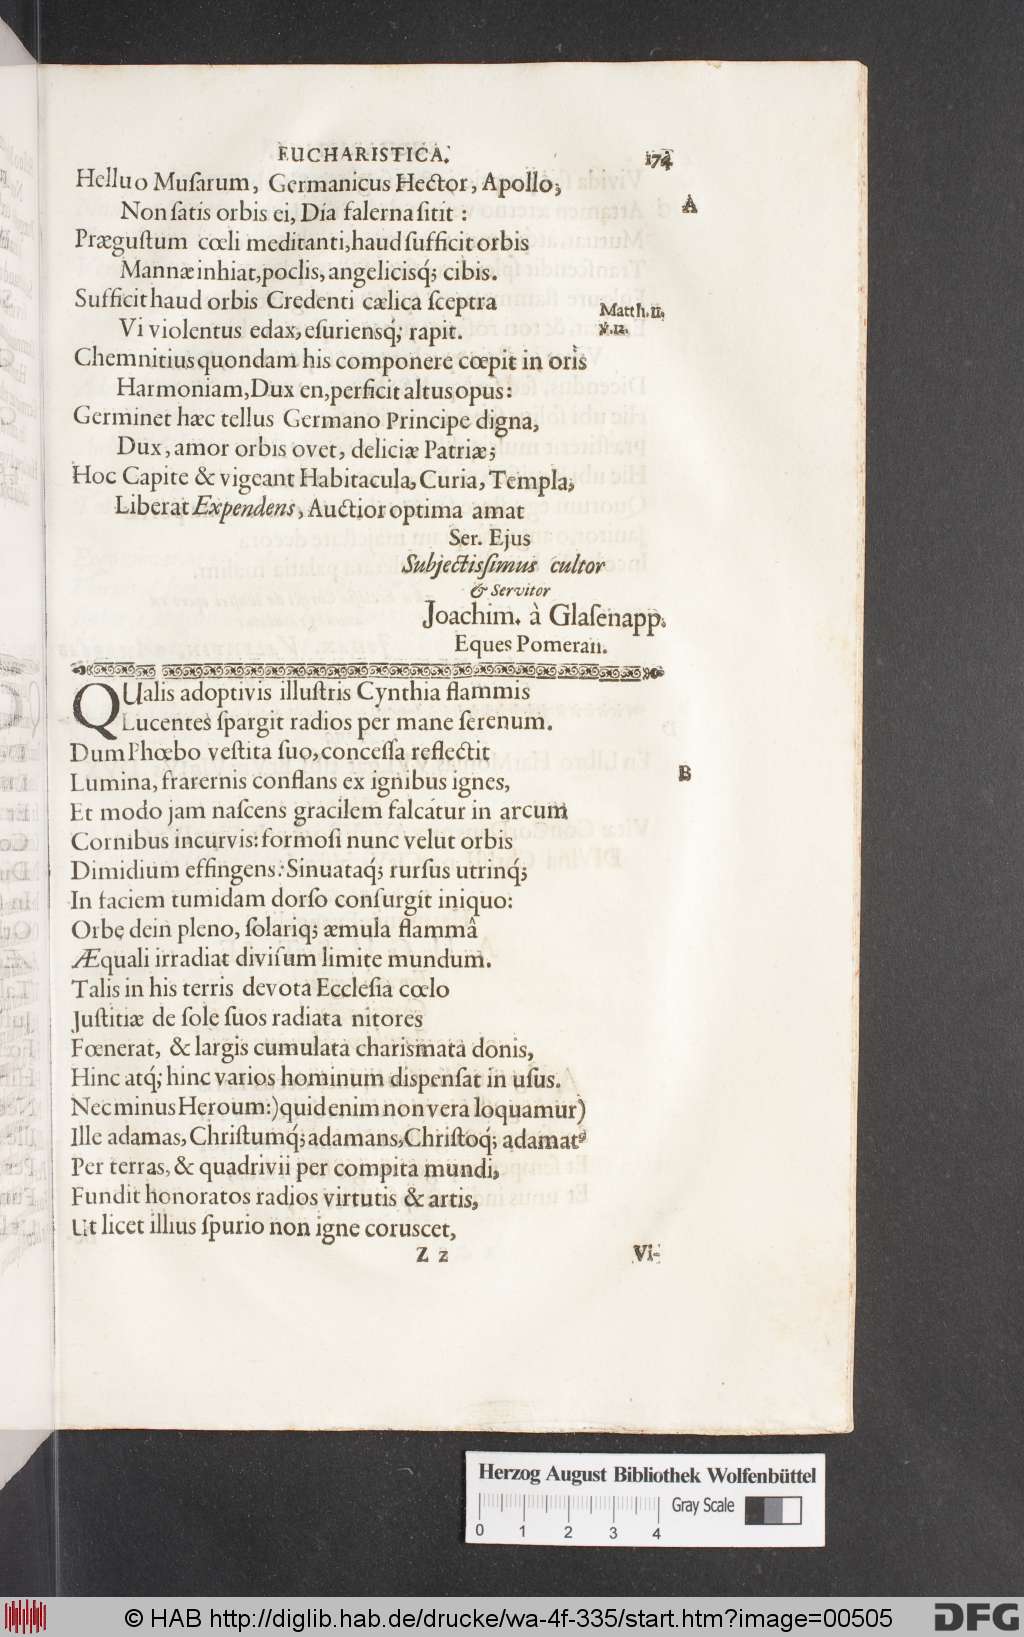 EUCHARISTICA. 174
Helluo Muſarum, Germanicus Hector, Apollo;
A
Non ſatis orbis ei, Dia falerna ſitit :
Præguſtum cœli meditanti, haud ſufficit orbis
Mannæ inhiat, poclis, angelicisq́; cibis.
Sufficit haud orbis Credenti cælica ſceptra
Matth. 11.
Vi violentus edax, eſuriensq́; rapit.
ỳ. 12.
Chemnitius quondam his componere cœpit in oris
Harmoniam, Dux en, perficit altus opus:
Germinet hæc tellus Germano Principe digna,
Dux, amor orbis ovet, deliciæ Patriæ;
Hoc Capite & vigeant Habitacula, Curia, Templa;
Liberat Expendens, Auctior optima amat
Ser. Ejus
Subjectiſſimus cultor
& Servitor
Joachim. à Glaſenapp.
Eques Pomeran.
QUalis adoptivis illuſtris Cynthia flammis
Lucentes ſpargit radios per mane ſerenum.
Dum Phœbo veſtita ſuo, conceſſa reflectit
B
Lumina, fraternis conflans ex ignibus ignes,
Et modo jam naſcens gracilem falcatur in arcum
Cornibus incurvis: formoſi nunc velut orbis
Dimidium effingens: Sinuataq́; rurſus utrinq́;
In faciem tumidam dorſo conſurgit iniquo:
Orbe dein pleno, ſolariq; æmula flammâ
Æquali irradiat diviſum limite mundum.
Talis in his terris devota Eccleſia cœlo
Juſtitiæ de ſole ſuos radiata nitores
Fœnerat, & largis cumulata charismata donis,
Hinc atq́; hinc varios hominum dispenſat in uſus.
Nec minus Heroum:) quid enim non vera loquamur)
Ille adamas, Chriſtumq́; adamans, Chriſtoq́; adamatꝰ
Per terras, & quadrivii per compita mundi,
Fundit honoratos radios virtutis & artis,
Ut licet illius ſpurio non igne coruscet,
Z z Vi-
Herzog August Bibliothek Wolfenbüttel
Gray Scale
0 1 2 3 4
© HAB http://diglib.hab.de/drucke/wa-4f-335/start.htm?image=00505
DFG